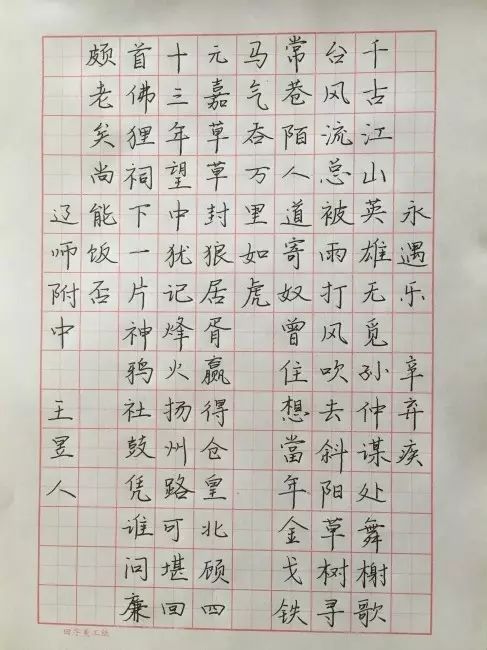 永遇乐 辛弃疾
千古江山英雄无觅孙仲谋处舞榭歌
台风流总被雨打风吹去斜阳草树寻
常巷陌人道寄奴曾住想當年金戈铁
马气吞万里如虎
元嘉草草封狼居胥赢得仓皇北顾四
十三年望中犹记烽火扬州路可堪回
首佛狸祠下一片神鸦社鼓凭谁问廉
颇老矣尚能饭否
辽师附中 王昱人